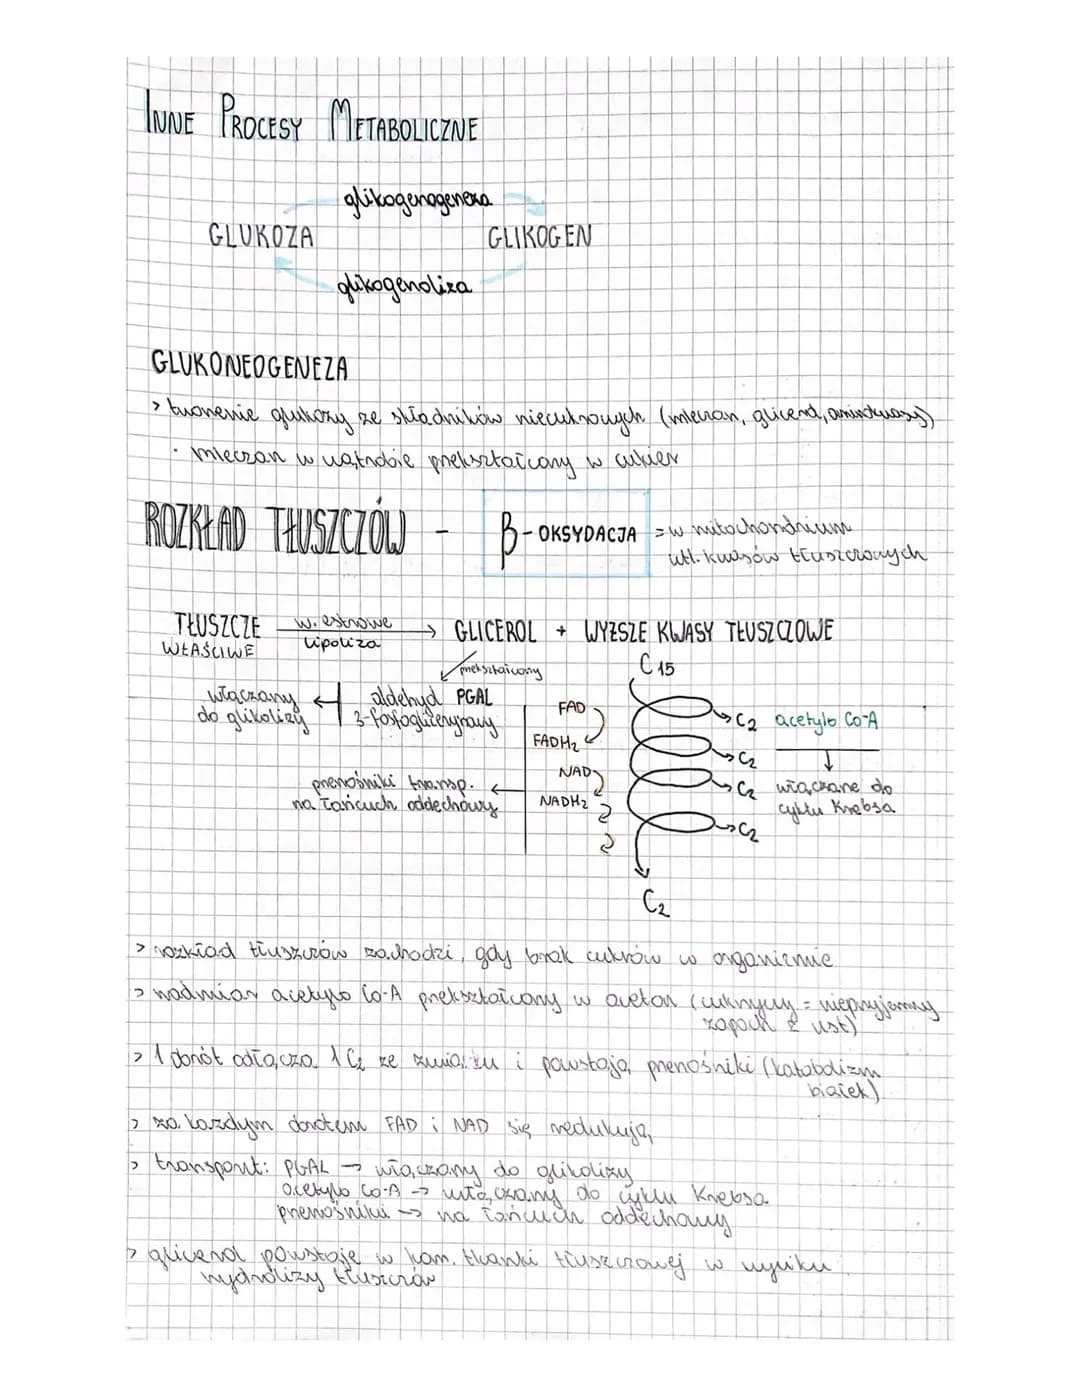 INNE PROCESY METABOLICZNE
glikogenogeneza
GLUKOZA GLIKOGEN
glikogenoliza
GLUKONEOGENEZA
> tworzenie glukozy ze składników niecukrowych (mleczan, glicerol, aminokwasy)
• mleczan w wątrobie przekształcany w cukier
ROZKŁAD TŁUSZCZÓW - β-OKSYDACJA = w mitochondrium
utl. kwasów tłuszczowych
TŁUSZCZE w. estrowe → GLICEROL + WYŻSZE KWASY TŁUSZCZOWE
WŁAŚCIWE lipoliza
przekształcony C15
włączany ← aldehyd PGAL
do glikolizy 3-fosfoglicerynowy
FAD
FADH2
NAD
NADH2
przenośniki transp. ←
na łańcuch oddechowy
→ C2 acetylo Co-A
→ C2
→ C2 włączane do
cyklu Krebsa
→ C2
C2
> rozkład tłuszczów zachodzi, gdy brak cukrów w organizmie
> nadmiar acetylo Co-A przekształcany w aceton (cukrzycy = nieprzyjemny
zapach z ust)
> 1 obrót odłącza 1 C2 ze związku i powstają przenośniki (katabolizm
białek)
> za każdym obrotem FAD i NAD się redukują
> transport: PGAL → włączany do glikolizy
acetylo Co-A → włączany do cyklu Krebsa
przenośniki → na łańcuch oddechowy
> glicerol powstaje w kom. tkanki tłuszczowej w wyniku
hydrolizy tłuszczów